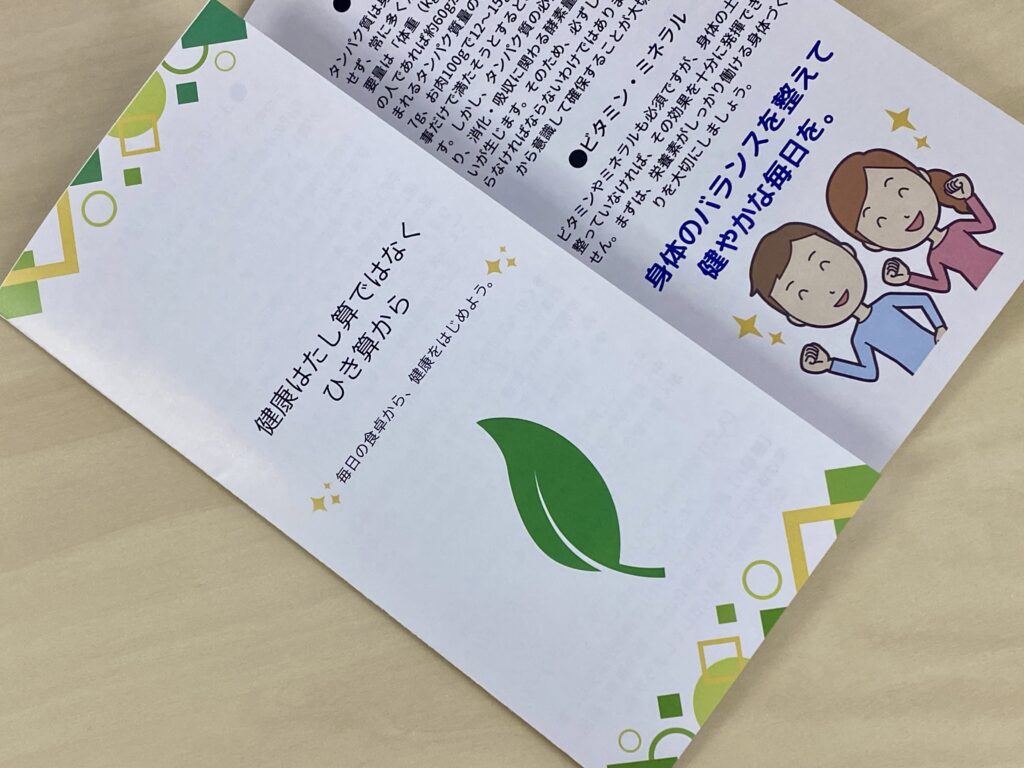 健康はたし算ではなく
ひき算から
毎日の食卓から、健康をはじめよう。
タンパク質は身
せず、常に多く
要量は「体重（K
の人であれば約60g
まれるタンパク質量の
7g、お肉100gで12〜15
事だけで満たそうとすると
す。しかし、タンパク質の必
り、消化・吸収に関わる酵素量
いが生じます。そのため、必ずし
らなければならないわけではありま
から意識して確保することが大切
●ビタミン・ミネラル
ビタミンやミネラルも必須ですが、身体の土
整っていなければ、その効果を十分に発揮でき
せん。まずは、栄養素がしっかり働ける身体づく
りを大切にしましょう。
身体のバランスを整えて
健やかな毎日を。